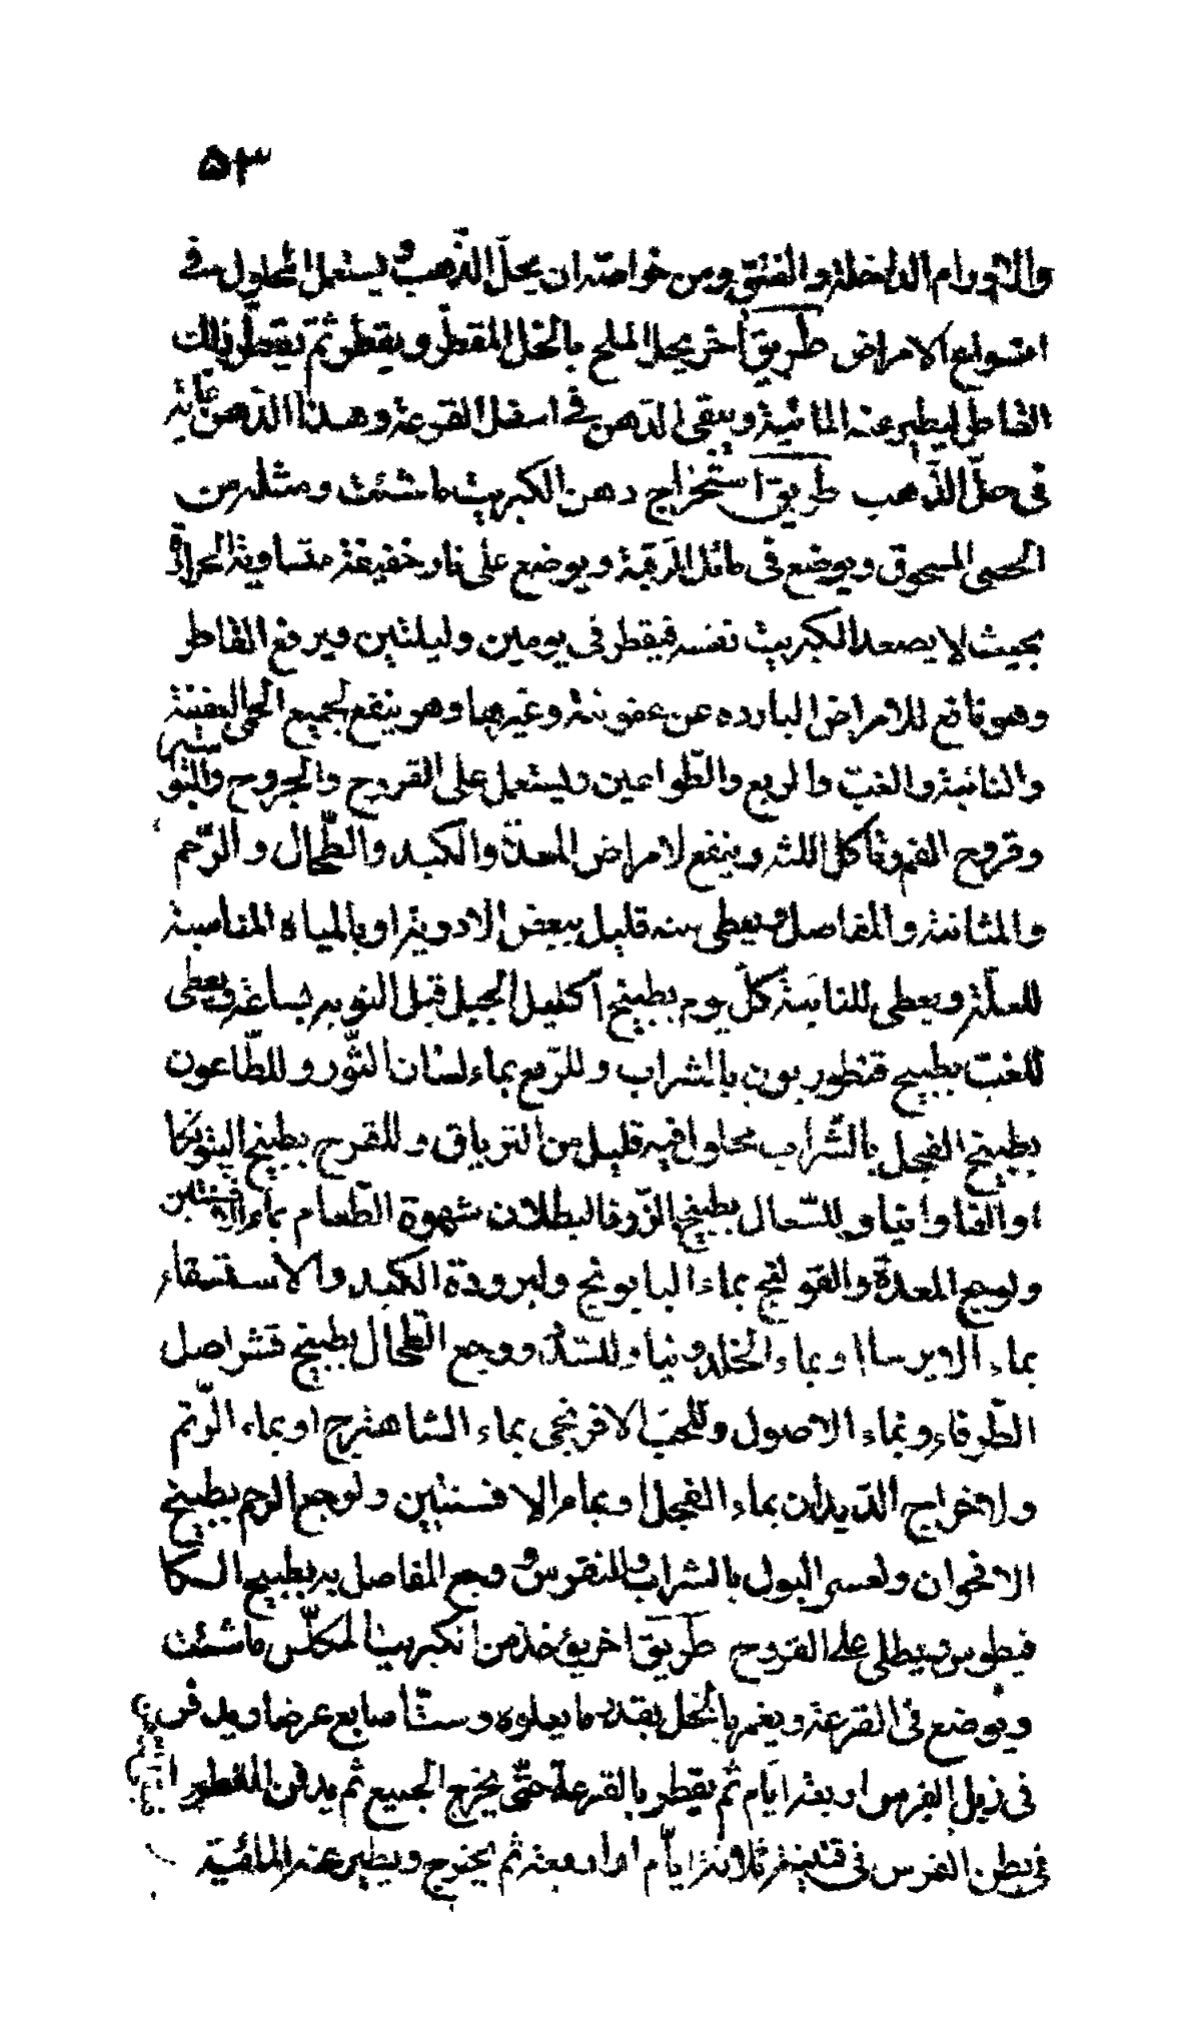 ٥٣
والاورام الداخلة والفتق ومن خواصه ان يحلّ الذّهب ويستعمل المحلول فى
انواع الامراض طريق آخر يحل الملح بالخل المقطّر ويقطر ثمّ يقطّر ذلك
القاطر ليطير عنه المائية ويبقى الدهن فى اسفل القرعة وهذا الدّهن غاية
فى حلّ الذّهب طريق استخراج دهن الكبريت ماشئت ومثله من
الحصى المسحوق ويوضع فى مائل الرّقبة ويوضع على نار خفيفة متساوية الحرارة
بحيث لا يصعد الكبريت نفسه فيقطر فى يومين وليلتين ويرفع القاطر
وهو نافع للامراض البارده عن عفونة وغيرها وهو ينفع لجميع الحمى
والنائبة والغبّ والربع والطّواعين ويستعمل على القروح والجروح
وقروح الفم وتأكل اللثه وينفع لامراض المعدة والكبد والطّحال والرّحم
والمثانة والمفاصل ويعطى منه قليل ببعض الادوية او بالمياه المناسبة
للعلّة ويعطى للنائبة كلّ يوم بطبيخ اكليل الجبل قبل النوبه بساعة ويعطى
للغبّ بطبيخ قنطوريون بالشراب وللرّبع بماء لسان الثّور وللطّاعون
بطبيخ الفجل بالشّراب محلولا فيه قليل من الترياق وللقرح بطبيخ
او الفاوانيا وللسّعال بطبيخ الزّوفا لبطلان شهوة الطّعام بماء الافسنتين
ولوجع المعدة والقولنج بماء البابونج ولبرودة الكبد والاستسقاء
بماء الايرسا او بماء الخلدونيا وللسّدّة ووجع الطّحال بطبيخ قشر اصل
الطّرفاء وبماء الاصول وللحبّ الافرنجى بماء الشاهترج او بماء الرّتم
ولاخراج الدّيدان بماء الفجل او بماء الافسنتين ولوجع الرحم بطبيخ
الاقحوان ولعسر البول بالشراب وللنقرس ووجع المفاصل به بطبيخ الكما
فيطوس ويطلى على القروح طريق آخر يؤخذ من الكبريت المكلّس ماشئت
ويوضع فى القرعة ويغمر بالخل بقدر ما يعلوه ستّ اصابع عرضا ويدفن
فى زبل الفرس اربعة ايّام ثمّ يقطر بالقرعة حتّى يخرج الجميع ثم يدفن المقطور
فى بطن الفرس فى قنينة ثلاثة ايّام او اربعة ثم يخرج ويطير عنه المائية